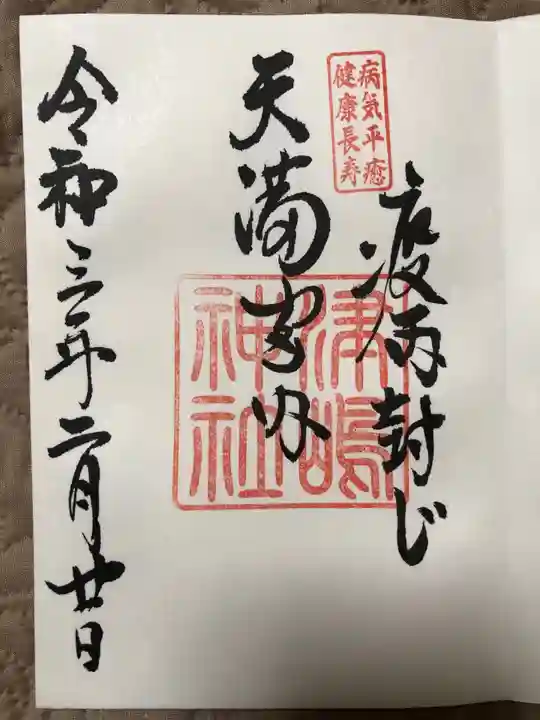 病気平癒
健康長寿
疫病封じ
津嶋
神社
天満宮内
令和三年二月廿日